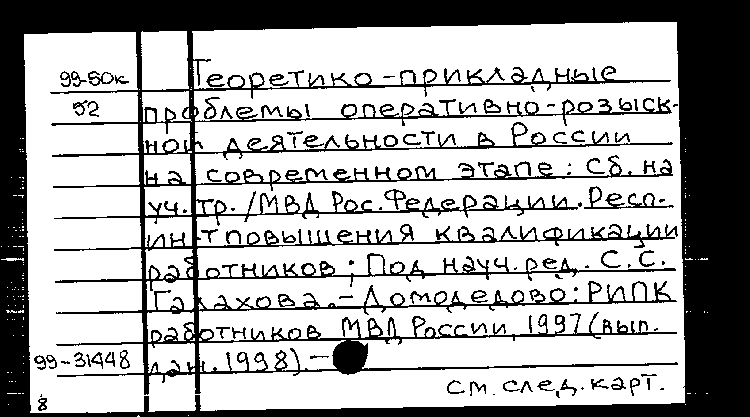 99-50к Теоретико-прикладные
52 проблемы оперативно-розыск-
ной деятельности в России
на современном этапе: Сб. на
уч. тр. / МВД Рос. Федерации. Респ.
ин-т повышения квалификации
работников; Под науч. ред. С.С.
Галахова. - Домодедово: РИПК
работников МВД России, 1997 (вып.
99-31448 дан. 1998). -
см. след. карт.
8